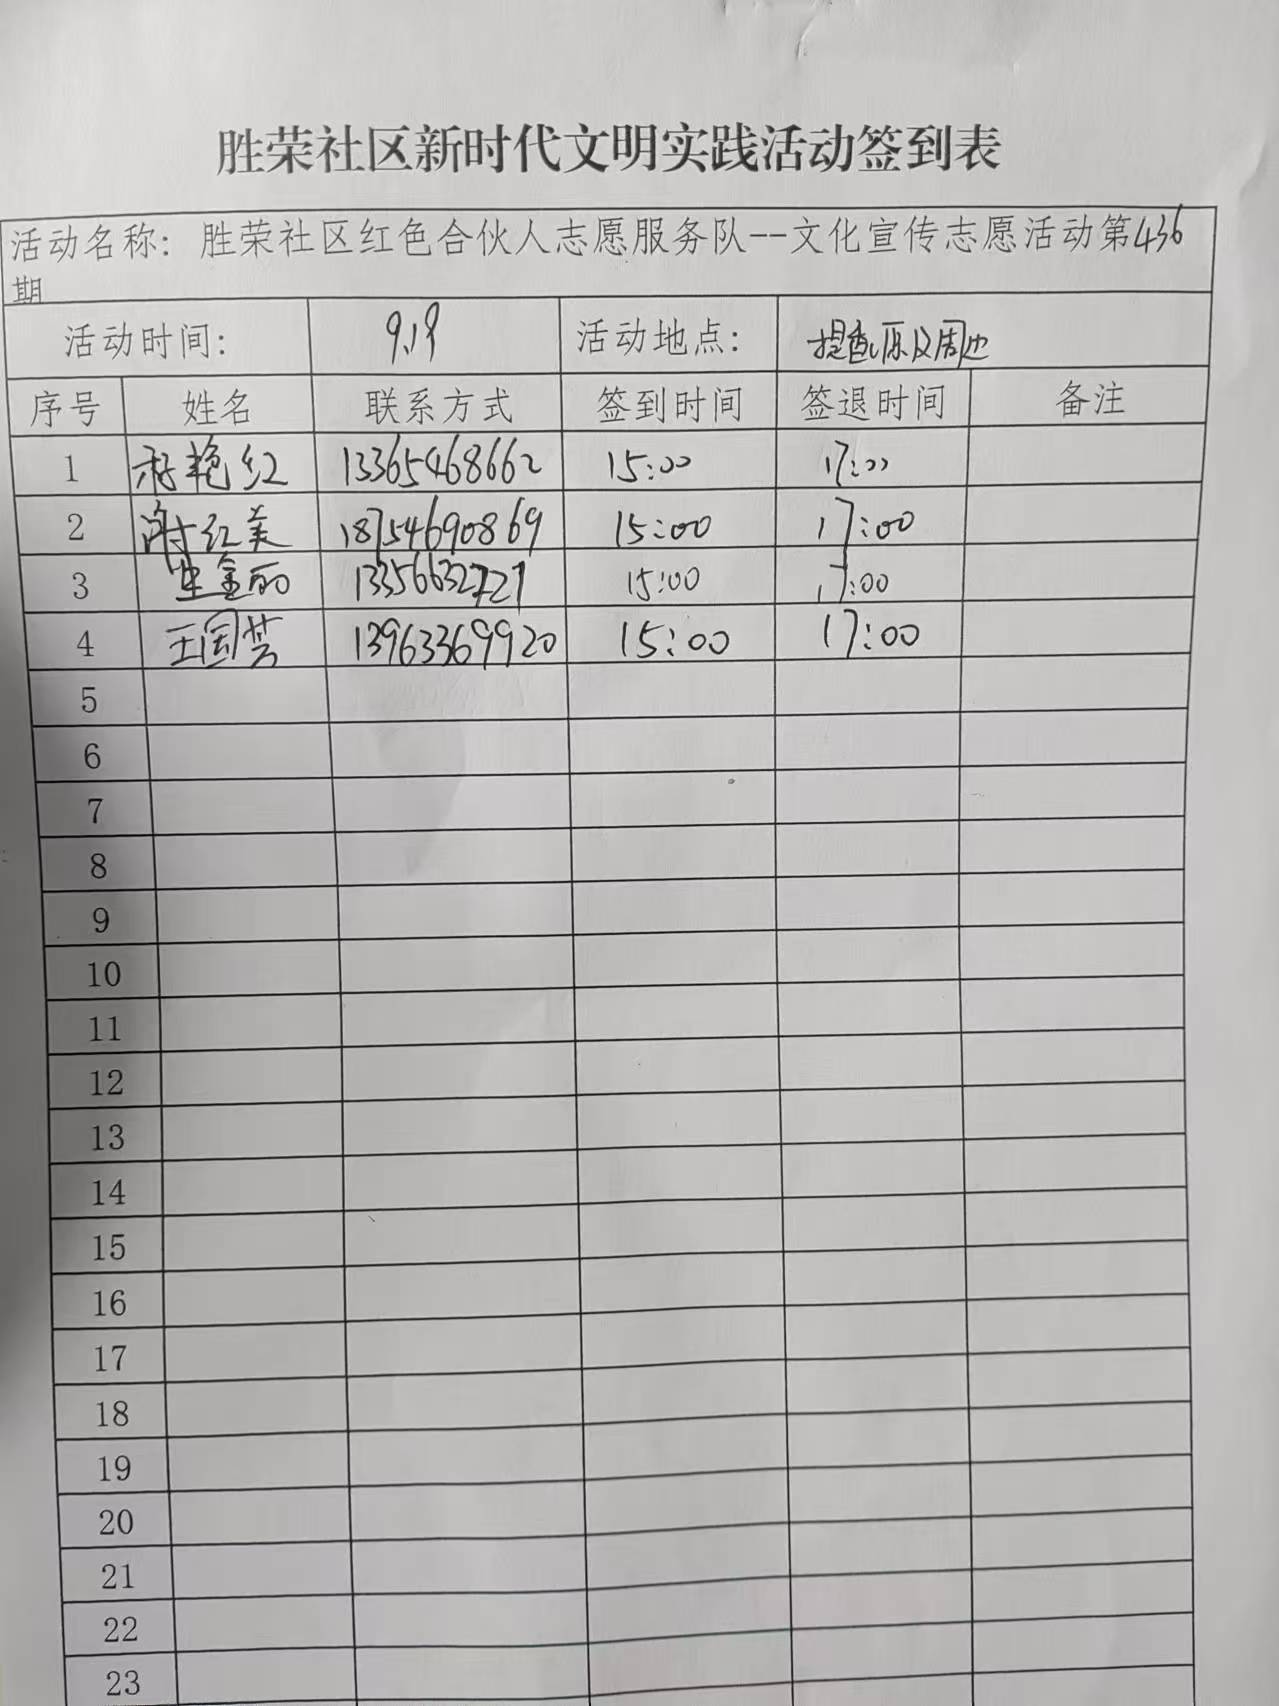 胜荣社区新时代文明实践活动签到表
活动名称: 胜荣社区红色合伙人志愿服务队--文化宣传志愿活动第436
期
活动时间: 活动地点:
序号 姓名 联系方式 签到时间 签退时间 备注
1 艳红 13365468662 15:00 17:00
2 红美 18754690869 15:00 17:00
3 13356632721 15:00 17:00
4 王国芸 13963369920 15:00 17:00
5
6
7
8
9
10
11
12
13
14
15
16
17
18
19
20
21
22
23